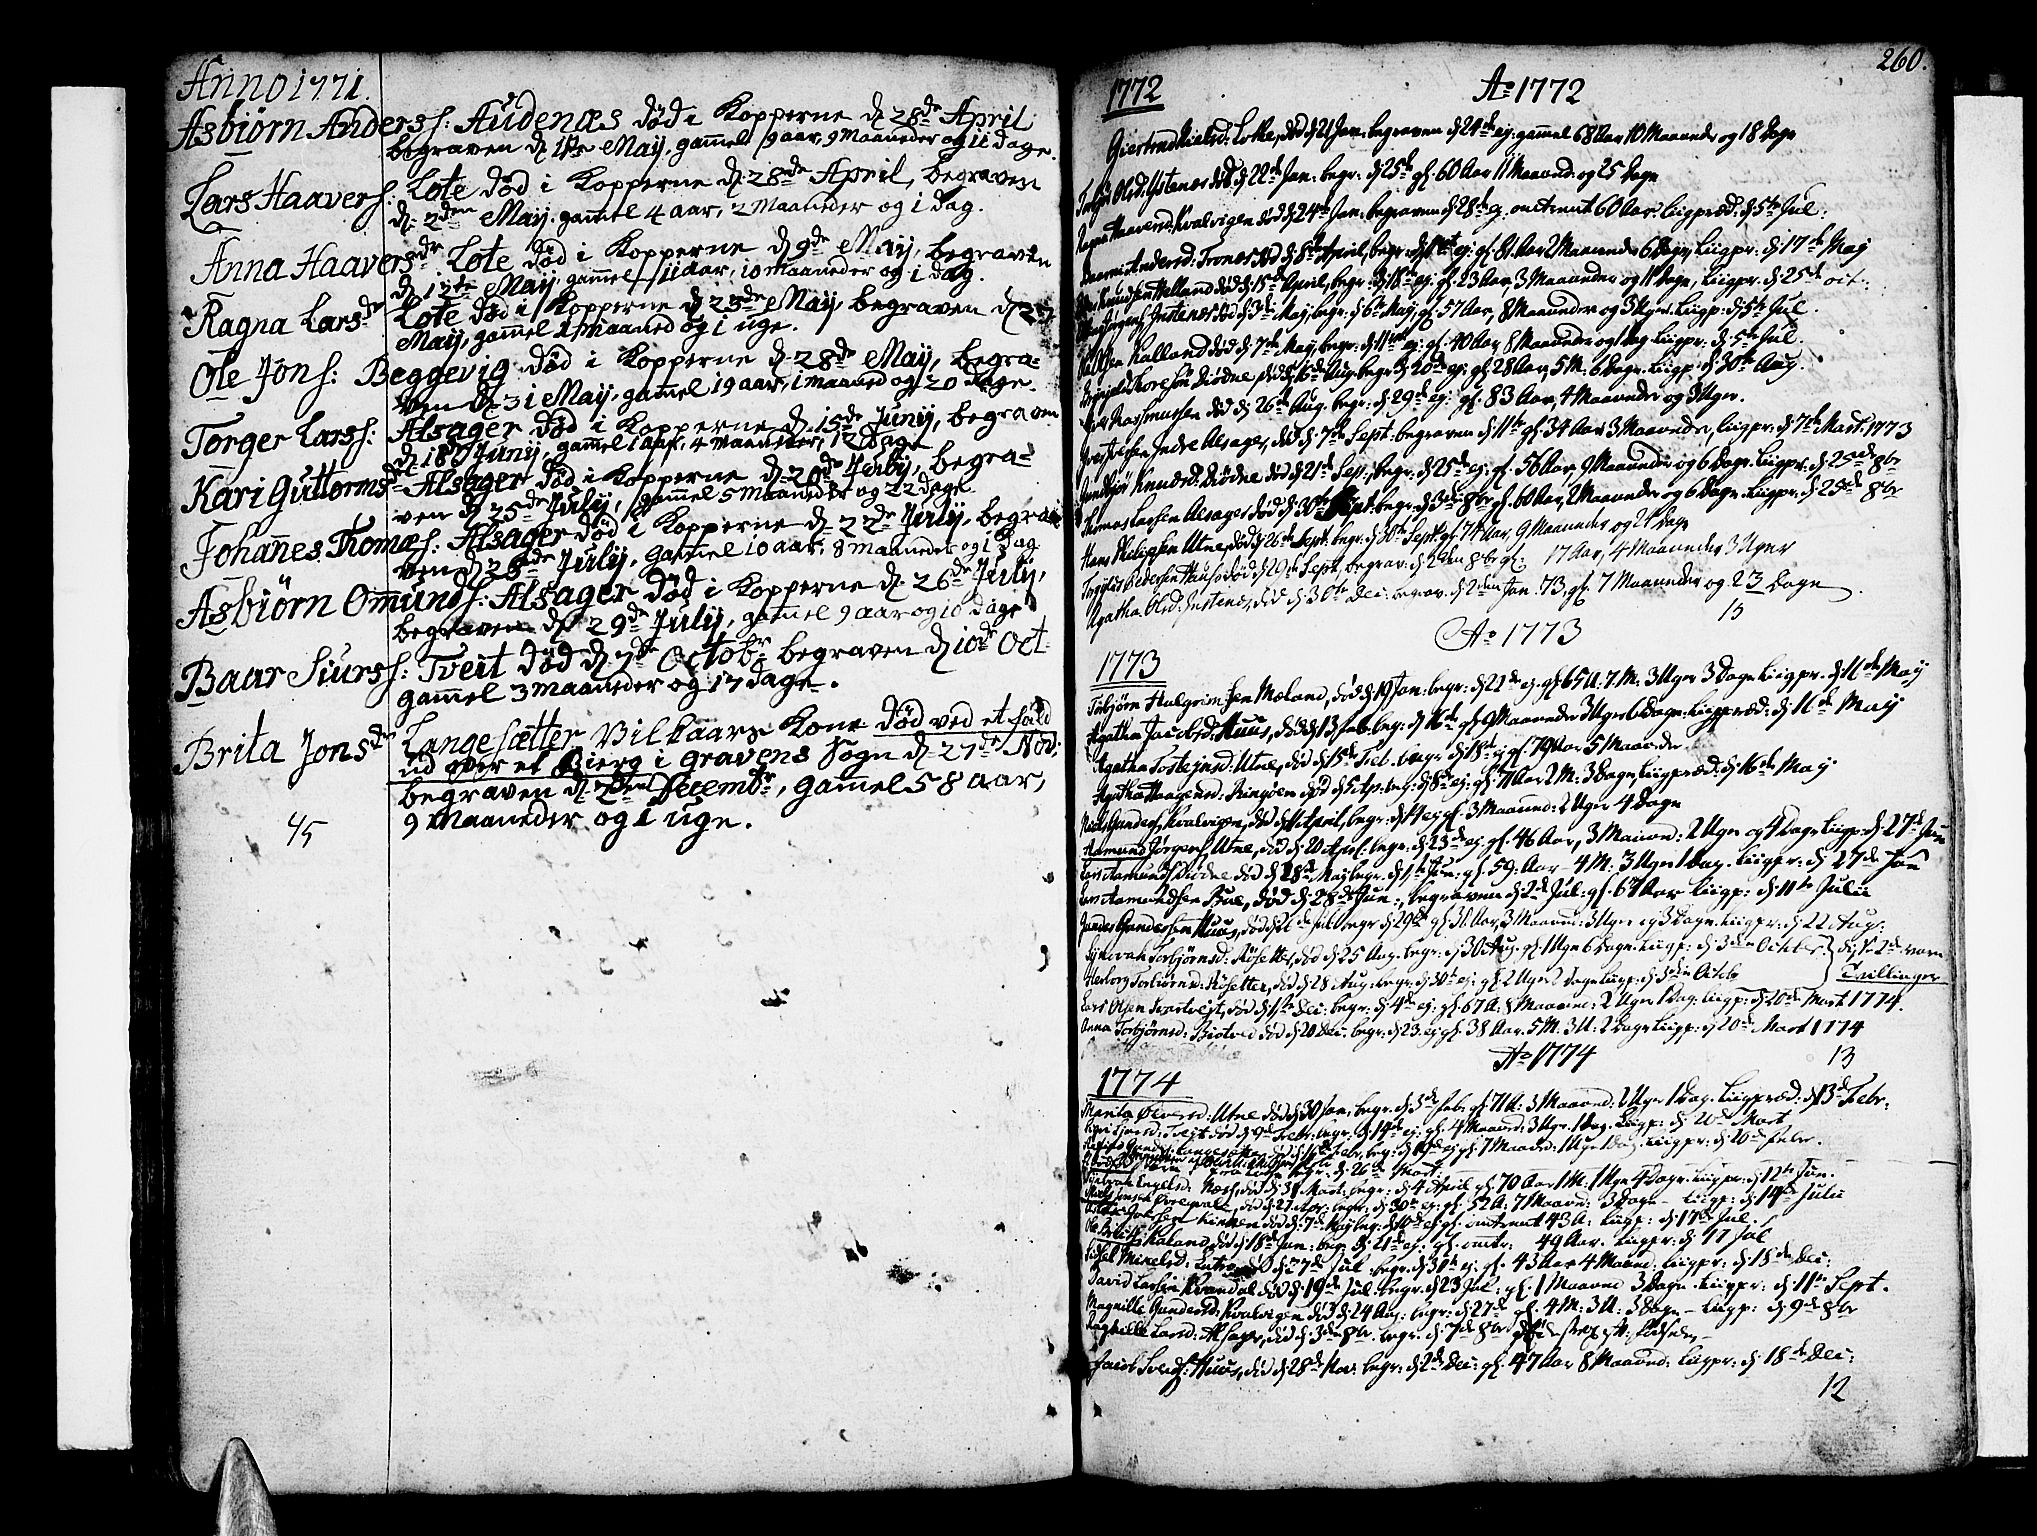 Anno 1771.
Asbiørn Anders: Audenæs død i Kopperne d. 28de April
begraven d. 1te Maij, gammel 9 aar, 9 Maaneder og 11 dage.
Lars Haavers: Lote død i Kopperne d. 28de April, begraven
d. 2den Maij. gammel 4 aar, 2 Maaneder og 1 dag.
Anna Haaversdr Lote død i Kopperne d. 9de Maij, begraven
d. 12te Maij, gammel 11 aar, 10 maaneder og 1 dag.
Ragna Larsdr Lote død i Kopperne d. 23de Maij begraven d. 27
Maij, gammel 1 maaned og 1 uge.
Ole Jons: Beggevig død i Kopperne d. 28de Maij, begra-
ven d. 31 Maij, gammel 19 aar, 1 maaned og 20 dage.
Torger Larss: Alsager død i Kopperne d. 15de Junij, begraven
d. 18de Junij, gammel 1 aar, 4 maaneder, 12 dage
Kari Guttormsdr Alsager død i Kopperne d. 20de Julij, begra-
ven d. 25de Julij, gammel 5 Maaneder og 22 dage.
Johannes Thomæs: Alsager død i Kopperne d. 22de Julij, begra-
ven d. 26de Julij, gammel 10 aar, 8 maaneder og 1 dag
Asbiørn Omunds: Alsager død i Kopperne d. 26de Julij,
begraven d. 29de Julij, gammel 9 aar og 10 dage
Baar Siurss: Tveit død d. 7de Octobr begraven d. 10de Oct:
gammel 3 maaneder og 17 dage.
Brita Jonsdr Langesætter Vilkaars Kone død ved et fald
ud over et Bierg i Gravens Sogn d. 27de Nov:
begraven d. 2den Decembr, gammel 58 aar,
9 Maaneder og 1 uge.
45
260.
1772 Ao 1772
Lote, død d. 21 Jan: begraven d. 24de ej: gammel 68 Aar 10 Maaneder og 18 Dage
Olsd: Ystenes død d. 22de Jan: begr: d. 25de gl. 60 Aar 11 Maaned: og 25 Dage
Ragna Haaversd: Kvalvigen død d. 24de Jan: begraven d. 28de ej. omtrent 60 Aar Liigpræd: d. 5te Jul:
Andersd: Trones død d. 8de April, begr: ej: gl. 81 Aar 2 Maaneder 6 Dage, Liigpr: d. 17de Maij
død d. 15de April, begr: d. 18de ej: gl. 23 Aar 3 Maaneder og 11 Dage, Liigpr: d. 25de
Jystenes død d. 3de Maij, begr: d. 6te Maij, gl. 57 Aar, 8 Maaneder og 3 Uger. Liigp: d. 5te Jul.
Kalland død d. 7de Maij, begr: d. 11te ej: gl. 40 Aar 8 Maaneder og 1 Dag. Liigpr: d. 5te Jul.
Diødne, død d. 16de Aug: begr: d. 20de ej: gl. 28 Aar, 5 M: 6 Dage. Liigp: d. 30te Aug.
Rasmussen død d. 26de Aug. begr: d. 29de ej: gl. 83 Aar, 4 Maaneder og 3 Uger.
Indre Alsager, død d. 7de Sept: begraven d. 11te gl. 34 Aar 3 Maaneder, Liigpr: d. 7de Mart: 1773
Knudsd: Diødne død d. 21de Sept: begr: d. 25de ej: gl. 56 Aar, 9 Maaneder og 6 Dage. Liigpr: d. 25de 8br
Thomas Larsen Alsager død d. 30te Sept: begr: d. 3de 8br gl. 60 Aar, 2 Maaneder og 6 Dage. Liigpr: d. 25de 8br
Hans Philipsen Utne, død d. 26de Sept: begr: d. 30te Sept: gl. 74 Aar, 9 Maaneder og 21 Dage
Pedersen død d. 29de Sept: begrav: d. 2den 8br gl: 17 Aar, 4 Maaneder 3 Uger
Agatha Olsd: Jystenes, død d. 30te Dec: begrav: d. 2den Jan: 73, gl. 7 Maaneder og 23 Dage
15
Ao 1773
1773
Torbjørn Halgrimsen Mæland, død d. 19 Jan: begr: d. 22de ej: gl 65 A. 7 M: 3 Uger 3 Dage Liigpr: d. 16de Maij
Agatha Jacobsd: Huus, død d. 13 Feb: beg: d. 16de gl. 9 Maaneder 3 Uger 6 Dage. Liigpræd: d. 16de Maij
Agatha Tosteinsd: Utne, død d. 15de Feb: begr: d. 18de ej: gl. 79 Aar 5 Maaneder
Agatha Haagensd: Ringøen død d. 5 Ap: beg: d. 8de ej: gl. 71 Aar 2 M: 3 Dage, Liigpræd: d. 16de Maij
Niels Gunders: Kvalvigen, død d. April, begr: d. ej: gl. 3 Maaned: 2 Uger 4 Dage
Aamund Jørgens: Utne, død d. 20 April: begr: d. 23de ej: gl. 46 Aar, 3 Maaned: 2 Uger og 4 Dage Liigp: d. 27de Jun
Lars Aamunds: Diødne død d. 28de Maij begr: d. 1te Jun: gl. 59: Aar 4 M: 3 Uger 1 Dag. Liigpr: d. 27de Jun
Lars Aamundsen Bue, død d. 28de Jun:, begraven d. 2de Jul: gl. 67 Aar Liigp: d. 11te Julii
Huus, død d. Jul: begr: d. 29de gl. 31 Aar, 3 Maaned: 3 Uger og 3 Dage. Liigpr: d. 22 Aug:
Synevah Torbjørnsd: Røsetter, død d. 25 Aug: begr: d. 30 Aug. gl. 1 Uge 6 Dage. Liigp: d. 3die Octobr } disse 2de vare
Herborg Torbjørnsd: Røsetter, død d. 28 Aug: begr: d. 30te ej: gl. 2 Uger 2 Dage Liigp: d. 3die Octob } Tvillinger
Lars Olsen Svartveit, død d. 1te Dec: begr: d. 4de ej: gl. 67 A: 8 Maaned: 2 Uger 1 Dag. Liigp: d. 20de Mart: 1774.
Anna Torbjørnsd: Biotveit død d. 20 Dec: begr: d. 23 ej: gl. 38 Aar. 5 M. 3 U: 2 Dage Liigp: d. 20de Mart 1774
13
Ao 1774
1774
Marita Olversd: Utne død d. 30 Jan: begr: d. 3de Feb: gl. 71 A: 3 Maaned: 2 Uger 1 Dag. Liigpræd: d. 13de Febr:
Tveit død d. 9de Febr: begr: d. 14de ej: gl. 4 Maaned: 3 Uger 1 Dag. Liigp: d. 20de Mart
Langesætter død d. 16de Febr: beg: d. ej: gl. 7 Maaned: 1 Uge 1 Dag. Liigpr: d. 20de Febr.
begr: d. 26de Mart:
Engelsd: Næss, død d. 31 Mart: begr: d. 4 April gl. 70 Aar 1 M: 1 Uge 4 Dage. Liigpr: d. 12te Jun.
død d. 27 Apr: begr: d. 30te ej: gl. 52 A: 7 Maaned: 3 Dage - Liigp: d. 10de Julii
død d. 7de Maij beg: d. 10de ej: gl. omtrent 43 A: Liigp: d. 17de Jul.
Kaland død d. 18de Jun: begr: d. 21de ej: gl. omtr: 49 Aar. Liigpr: d. 17 Jul
Sidsel Mikelsd: død d. 27de Jul: begr: d. 31te ej: gl. 43 Aar 4 Maaned: Liigpr: d. 18de Dec:
David Larsen Kvandal død d. 19de Jul: begr: d. 23 Jul: gl: 1 Maaned 3 Dage. Liigpr: d. 11te Sept.
Magnille Gundersd: Kvalvigen død d. 24 Aug: begr: d. 27de gl. 4 M: 3 U: 3 Dage - Liigp: d. 9de 8br
Ragnille Larsd: Alsager, død d. 3de 8br: begr: d. 7de 8br: døde strax eft: fødselen,
Jacob Svends: Huus, død d. 28de Nov: begr: d. 2de Dec: gl. 47 Aar 8 Maaned: Liigpr: d. 18de Dec:
12